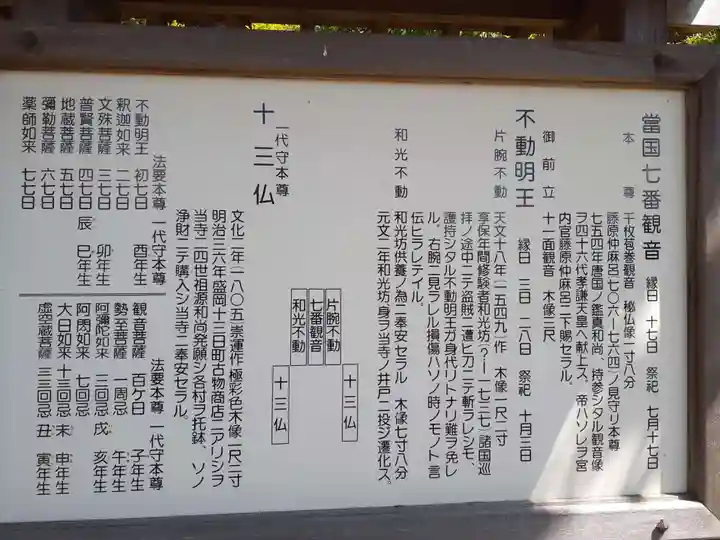 當国七番観音　縁日　十七日　祭祀　七月十七日
本尊　千枚苞巻観音　秘仏像一寸八分
藤原仲麻呂(七〇六ー七六四)ノ見守リ本尊
七五四年唐国ノ鑑真和尚、持参シタル観音像
ヲ四十六代孝謙天皇ヘ献上ス。帝ハソレヲ宮
内官藤原仲麻呂ニ下賜セラル。
御前立　十一面観音　木像三尺
不動明王　縁日　三日　二八日　祭祀　十月三日
片腕不動　天文十八年(一五四九)作　木像一尺二寸
享保年間修験者和光坊(？ー一七三七)諸国巡
拝ノ途中ニテ盗賊ニ遭ヒ刀ニテ斬ラレシモ、
護持シタル不動明王ガ身代リトナリ難ヲ免レ
ル。右腕ニ見ラレル損傷ハソノ時ノモノト言
伝ヒラレテイル。
和光不動　和光坊供養ノ為ニ奉安セラル　木像七寸八分
元文二年和光坊身ヲ当寺ノ井戸ニ投ジ遷化ス。
十三仏
片腕不動
七番観音
和光不動
十三仏
十三仏　一代守本尊
文化二年(一八〇五)崇運作極彩色木像一尺二寸
明治三六年盛岡十三日町古物商店ニアリシヲ
当寺二四世祖源和尚発願シ各村ヲ托鉢、ソノ
浄財ニテ購入シ当寺ニ奉安セラル。
法要本尊　一代守本尊
不動明王　初七日　酉年生
釈迦如来　二七日
文殊菩薩　三七日　卯年生
普賢菩薩　四七日　辰　巳年生
地蔵菩薩　五七日
彌勒菩薩　六七日
薬師如来　七七日
法要本尊　一代守本尊
観音菩薩　百ケ日　子年生
勢至菩薩　一周忌　午年生
阿彌陀如来　三回忌　戌　亥年生
阿閦如来　七回忌
大日如来　十三回忌　未　申年生
虚空蔵菩薩　三三回忌　丑　寅年生